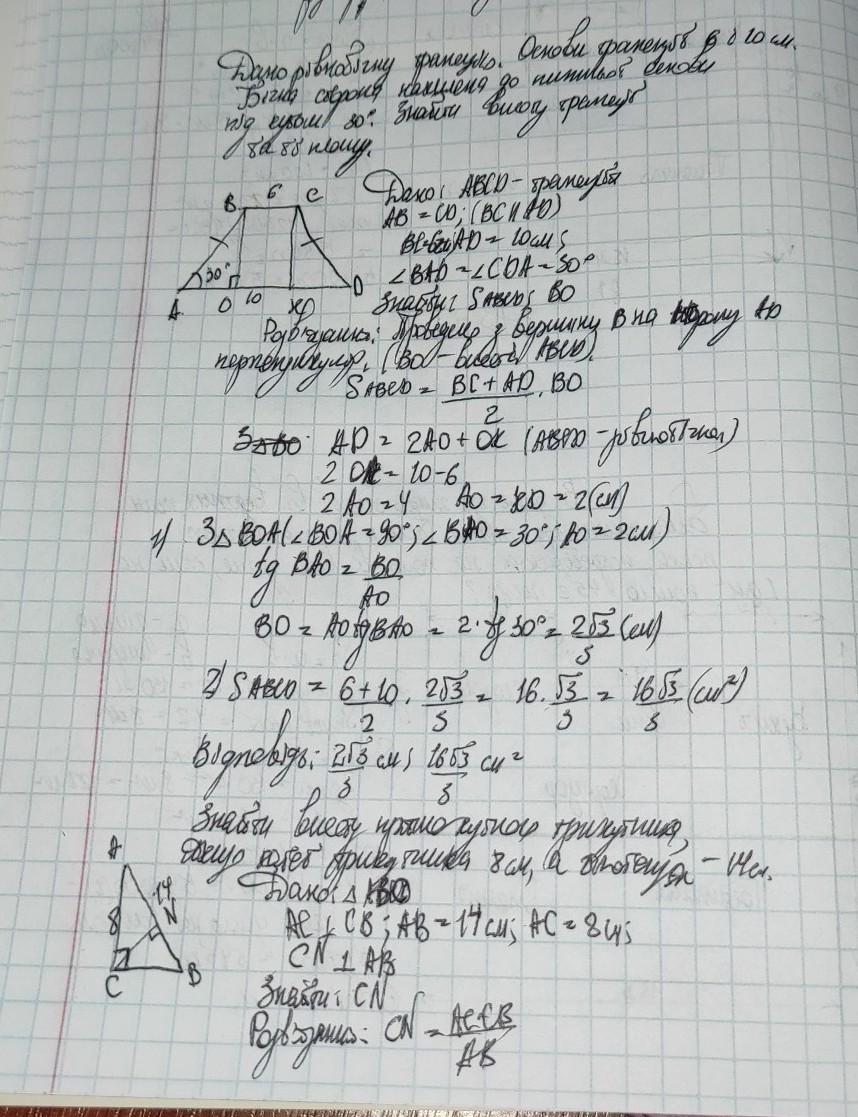 Дано рівнобічну трапецію. Основи трапеції 6 і 10 см.
Бічна сторона нахилена до нижньої основи
під кутом 30°. Знайти висоту трапеції
та її площу.
B 6 C
30°
A O 10 K D
Дано: ABCD - трапеція
AB = CD; (BC || AD)
BC=6см; AD = 10см;
∠BAD = ∠CDA = 30°
Знайти: SABCD; BO
Розв'язання: Проведемо з вершини B на сторону AD
перпендикуляр. (BO - висота ABCD).
SABCD = BC + AD / 2 · BO
AD = 2AO + OK (ABCD - рівнобічна)
2 = 10 - 6
2 AO = 4 AO = KD = 2 (см)
1) З △ BOA (∠BOA = 90°; ∠BAO = 30°; AO = 2см)
tg BAO = BO / AO
BO = AO tg BAO = 2 · tg 30° = 2√3 / 3 (см)
2) SABCD = 6 + 10 / 2 · 2√3 / 3 = 16 · √3 / 3 = 16√3 / 3 (см²)
Відповідь: 2√3 / 3 см; 16√3 / 3 см²
Знайти висоту прямокутного трикутника,
якщо катет трикутника 8 см, а гіпотенуза - 14см.
A
14
8 N
C B
Дано: △
AC ⊥ CB; AB = 14 см; AC = 8 см;
CN ⊥ AB
Знайти: CN
Розв'язання: CN = AC·CB / AB